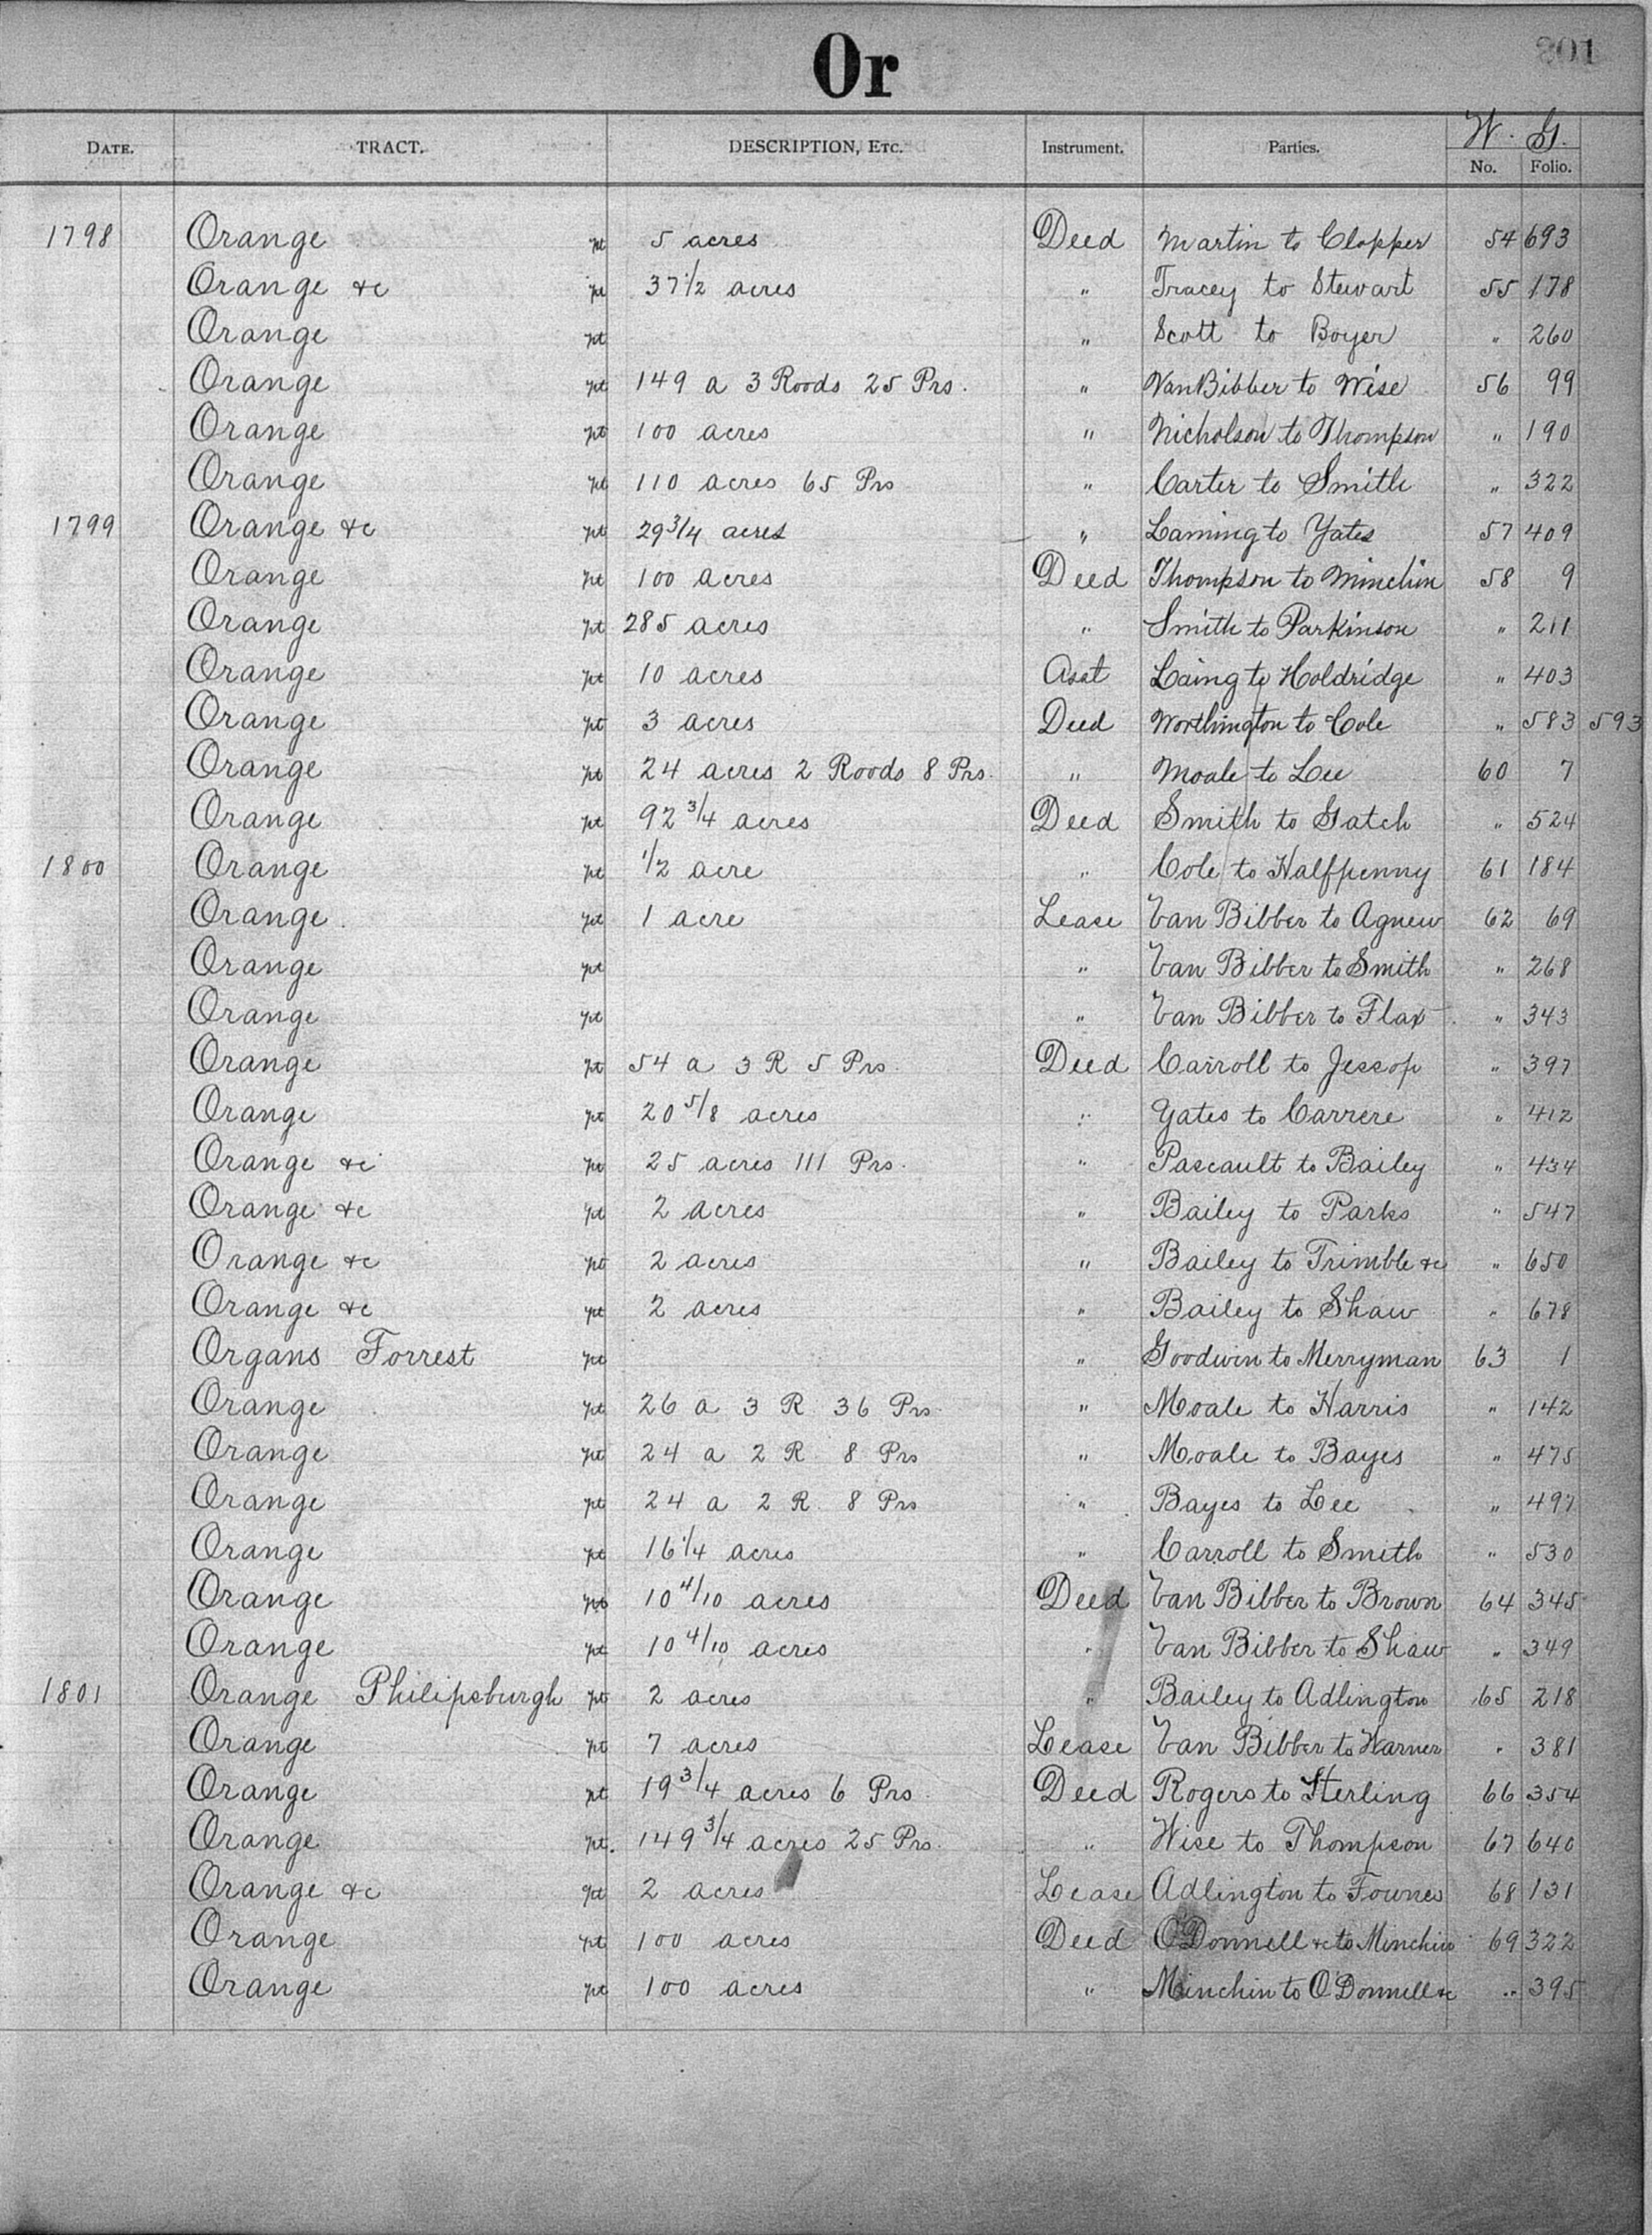 Or
301
DATE. TRACT. DESCRIPTION, ETC. Instrument. Parties. W. G. No. Folio.
1798 Orange pt 5 acres Deed Martin to Clopper 54 693
Orange &c pt 37 1/2 acres " Tracey to Stewart 55 178
Orange pt " Scott to Boyer " 260
Orange pt 149 a 3 Roods 25 Prs. " Van Bibber to Wise 56 99
Orange pt 100 acres " Nicholson to Thompson " 190
Orange pt 110 acres 65 Prs " Carter to Smith " 322
1799 Orange &c pt 29 3/4 acres " Laming to Yates 57 409
Orange pt 100 acres Deed Thompson to Minchin 58 9
Orange pt 285 acres " Smith to Parkinson " 211
Orange pt 10 acres Asst Laing to Holdridge " 403
Orange pt 3 acres Deed Worthington to Cole " 583 593
Orange pt 24 acres 2 Roods 8 Prs. " Moale to Lee 60 7
Orange pt 92 3/4 acres Deed Smith to Gatch " 524
1800 Orange pt 1/2 acre " Cole to Halfpenny 61 184
Orange pt 1 acre Lease Van Bibber to Agnew 62 69
Orange pt " Van Bibber to Smith " 268
Orange pt " Van Bibber to Flax " 343
Orange pt 54 a 3 R 5 Prs. Deed Carroll to Jessop " 397
Orange pt 20 5/8 acres " Yates to Carrere " 412
Orange &c pt 25 acres 111 Prs. " Pascault to Bailey " 434
Orange &c pt 2 acres " Bailey to Parks " 547
Orange &c pt 2 acres " Bailey to Trimble &c " 650
Orange &c pt 2 acres " Bailey to Shaw " 678
Organs Forrest pt " Goodwin to Merryman 63 1
Orange pt 26 a 3 R 36 Prs " Moale to Harris " 142
Orange pt 24 a 2 R 8 Prs " Moale to Bayes " 475
Orange pt 24 a 2 R 8 Prs " Bayes to Lee " 497
Orange pt 16 1/4 acres " Carroll to Smith " 530
Orange pt 10 4/10 acres Deed Van Bibber to Brown 64 345
Orange pt 10 4/10 acres " Van Bibber to Shaw " 349
1801 Orange Philipsburgh pt 2 acres " Bailey to Adlington 65 218
Orange pt 7 acres Lease Van Bibber to Warner " 381
Orange pt 19 3/4 acres 6 Prs Deed Rogers to Sterling 66 354
Orange pt. 149 3/4 acres 25 Prs. " Wise to Thompson 67 640
Orange &c pt 2 acres Lease Adlington to Fownes 68 131
Orange pt 100 acres Deed O'Donnell &c to Minchin 69 322
Orange pt 100 acres " Minchin to O'Donnell &c " 395